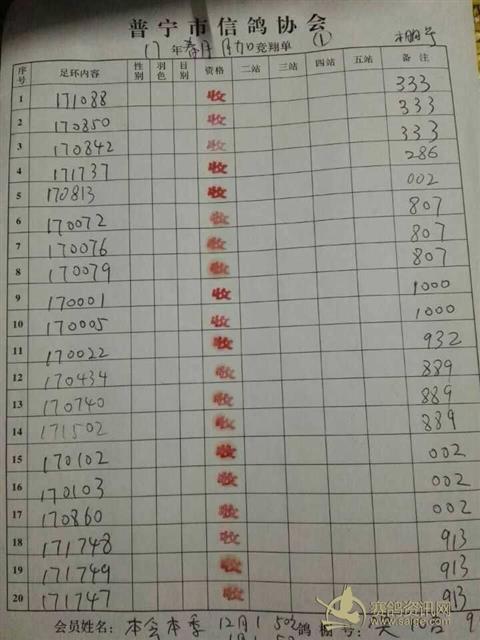 普宁市信鸽协会
17年春 月 竞翔单 ① 棚号
序号 足环内容 性别 羽色 目别 资格 二站 三站 四站 五站 备注
1 171088 收 333
2 170850 收 333
3 170842 收 333
4 171737 收 286
5 170813 收 002
6 170072 收 807
7 170076 收 807
8 170079 收 807
9 170001 收 1000
10 170005 收 1000
11 170022 收 932
12 170434 收 889
13 170740 收 889
14 171502 收 889
15 170102 收 002
16 170103 收 002
17 170860 收 002
18 171748 收 913
19 171749 收 913
20 171747 收 913
会员姓名: 本会本季 12月1 鸽棚号:
赛鸽资讯网
www.saige.com